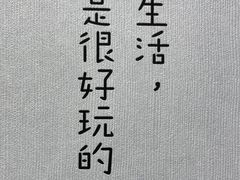 生活，
是很好玩的